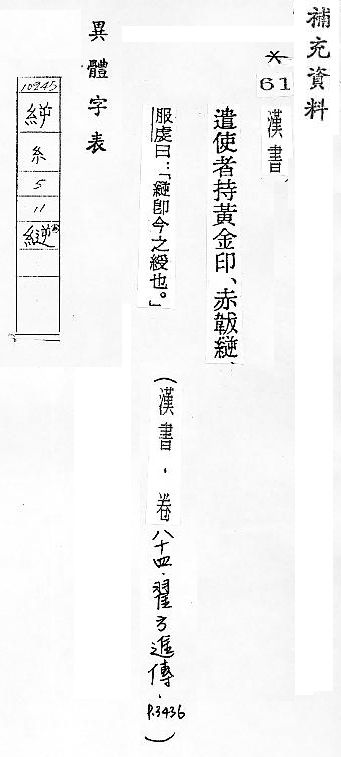 補充資料
*
61
漢書
遣使者持黃金印、赤韍縌、
服虔曰:「縌卽今之綬也。」
(漢書.卷八十四.翟方進傳.P.3436)
異體字表
10245
糸
5
11
縌